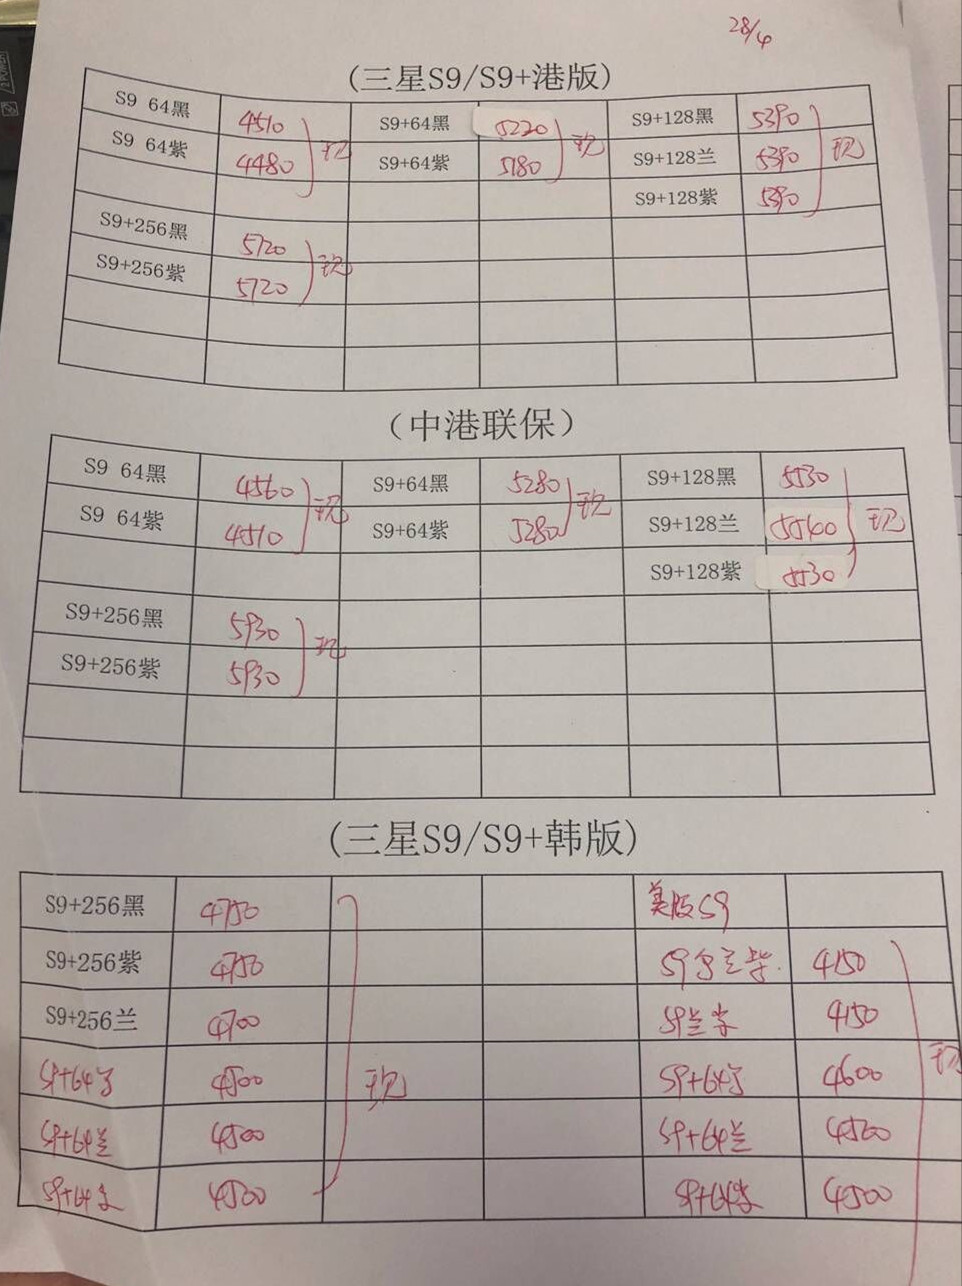 28/4
(三星S9/S9+港版)
S9 64黑 4510 S9+64黑 5220 S9+128黑 5390
S9 64紫 4480 现 S9+64紫 5180 现 S9+128兰 5390 现
S9+128紫 5390
S9+256黑 5720
S9+256紫 5720 现
（中港联保）
S9 64黑 4560 S9+64黑 5280 S9+128黑 5530
S9 64紫 4510 现 S9+64紫 5280 现 S9+128兰 5560 现
S9+128紫 5530
S9+256黑 5930
S9+256紫 5930 现
(三星S9/S9+韩版)
S9+256黑 4750 美版S9
S9+256紫 4750 S9 4150
S9+256兰 4700 S9兰 4150
S9+64 4500 现 S9+64 4600 现
S9+64兰 4500 S9+64兰 4500
S9+64 4500 S9+64 4500